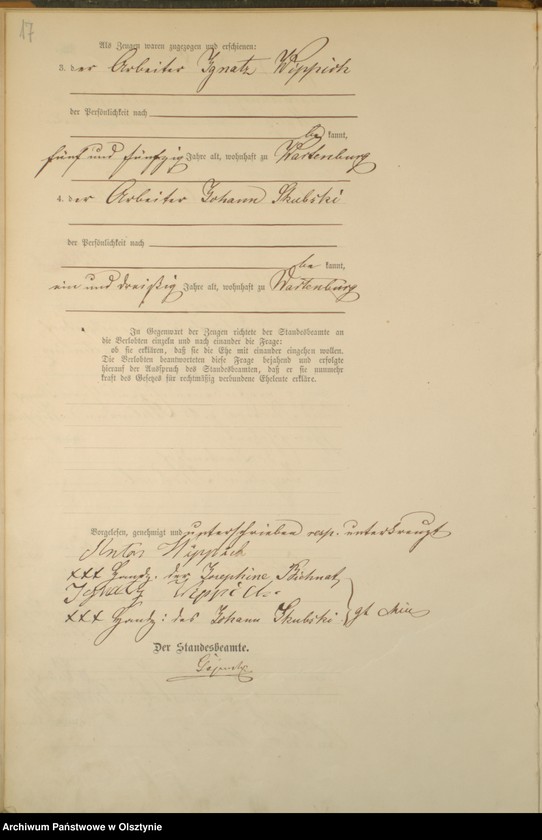 17
Als Zeugen waren zugezogen und erschienen:
3. der Arbeiter Ignatz Wippich
der Persönlichkeit nach
be kannt,
fünf und fünfzig Jahre alt, wohnhaft zu Wartenburg
4. der Arbeiter Johann Skubski
der Persönlichkeit nach
be kannt,
ein und dreißig Jahre alt, wohnhaft zu Wartenburg
In Gegenwart der Zeugen richtete der Standesbeamte an
die Verlobten einzeln und nach einander die Frage:
ob sie erklären, daß sie die Ehe mit einander eingehen wollen.
Die Verlobten beantworteten diese Frage bejahend und erfolgte
hierauf der Ausspruch des Standesbeamten, daß er sie nunmehr
kraft des Gesetzes für rechtmäßig verbundene Eheleute erkläre.
Vorgelesen, genehmigt und unterschrieben resp. unterkreuzt
Anton Wippich
+++ Handz. der Josephine
Ignatz
+++ Handz: des Johann Skubski
Der Standesbeamte.
Archiwum Państwowe w Olsztynie